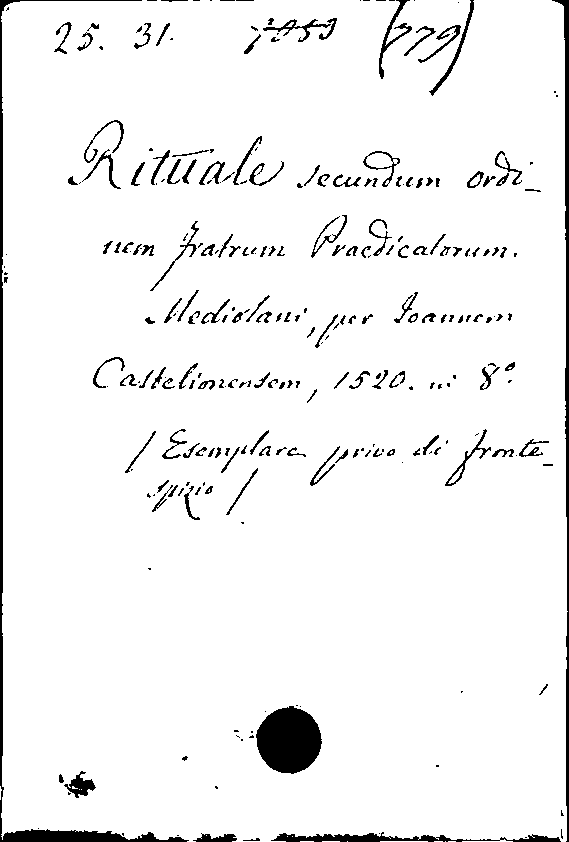 25. 31. (779)
Rituale secundum ordi-
nem Fratrum Praedicatorum.
Mediolani, per Ioannem
Castelionensem, 1520. in 8°.
/ Esemplare privo di fronte-
spizio /